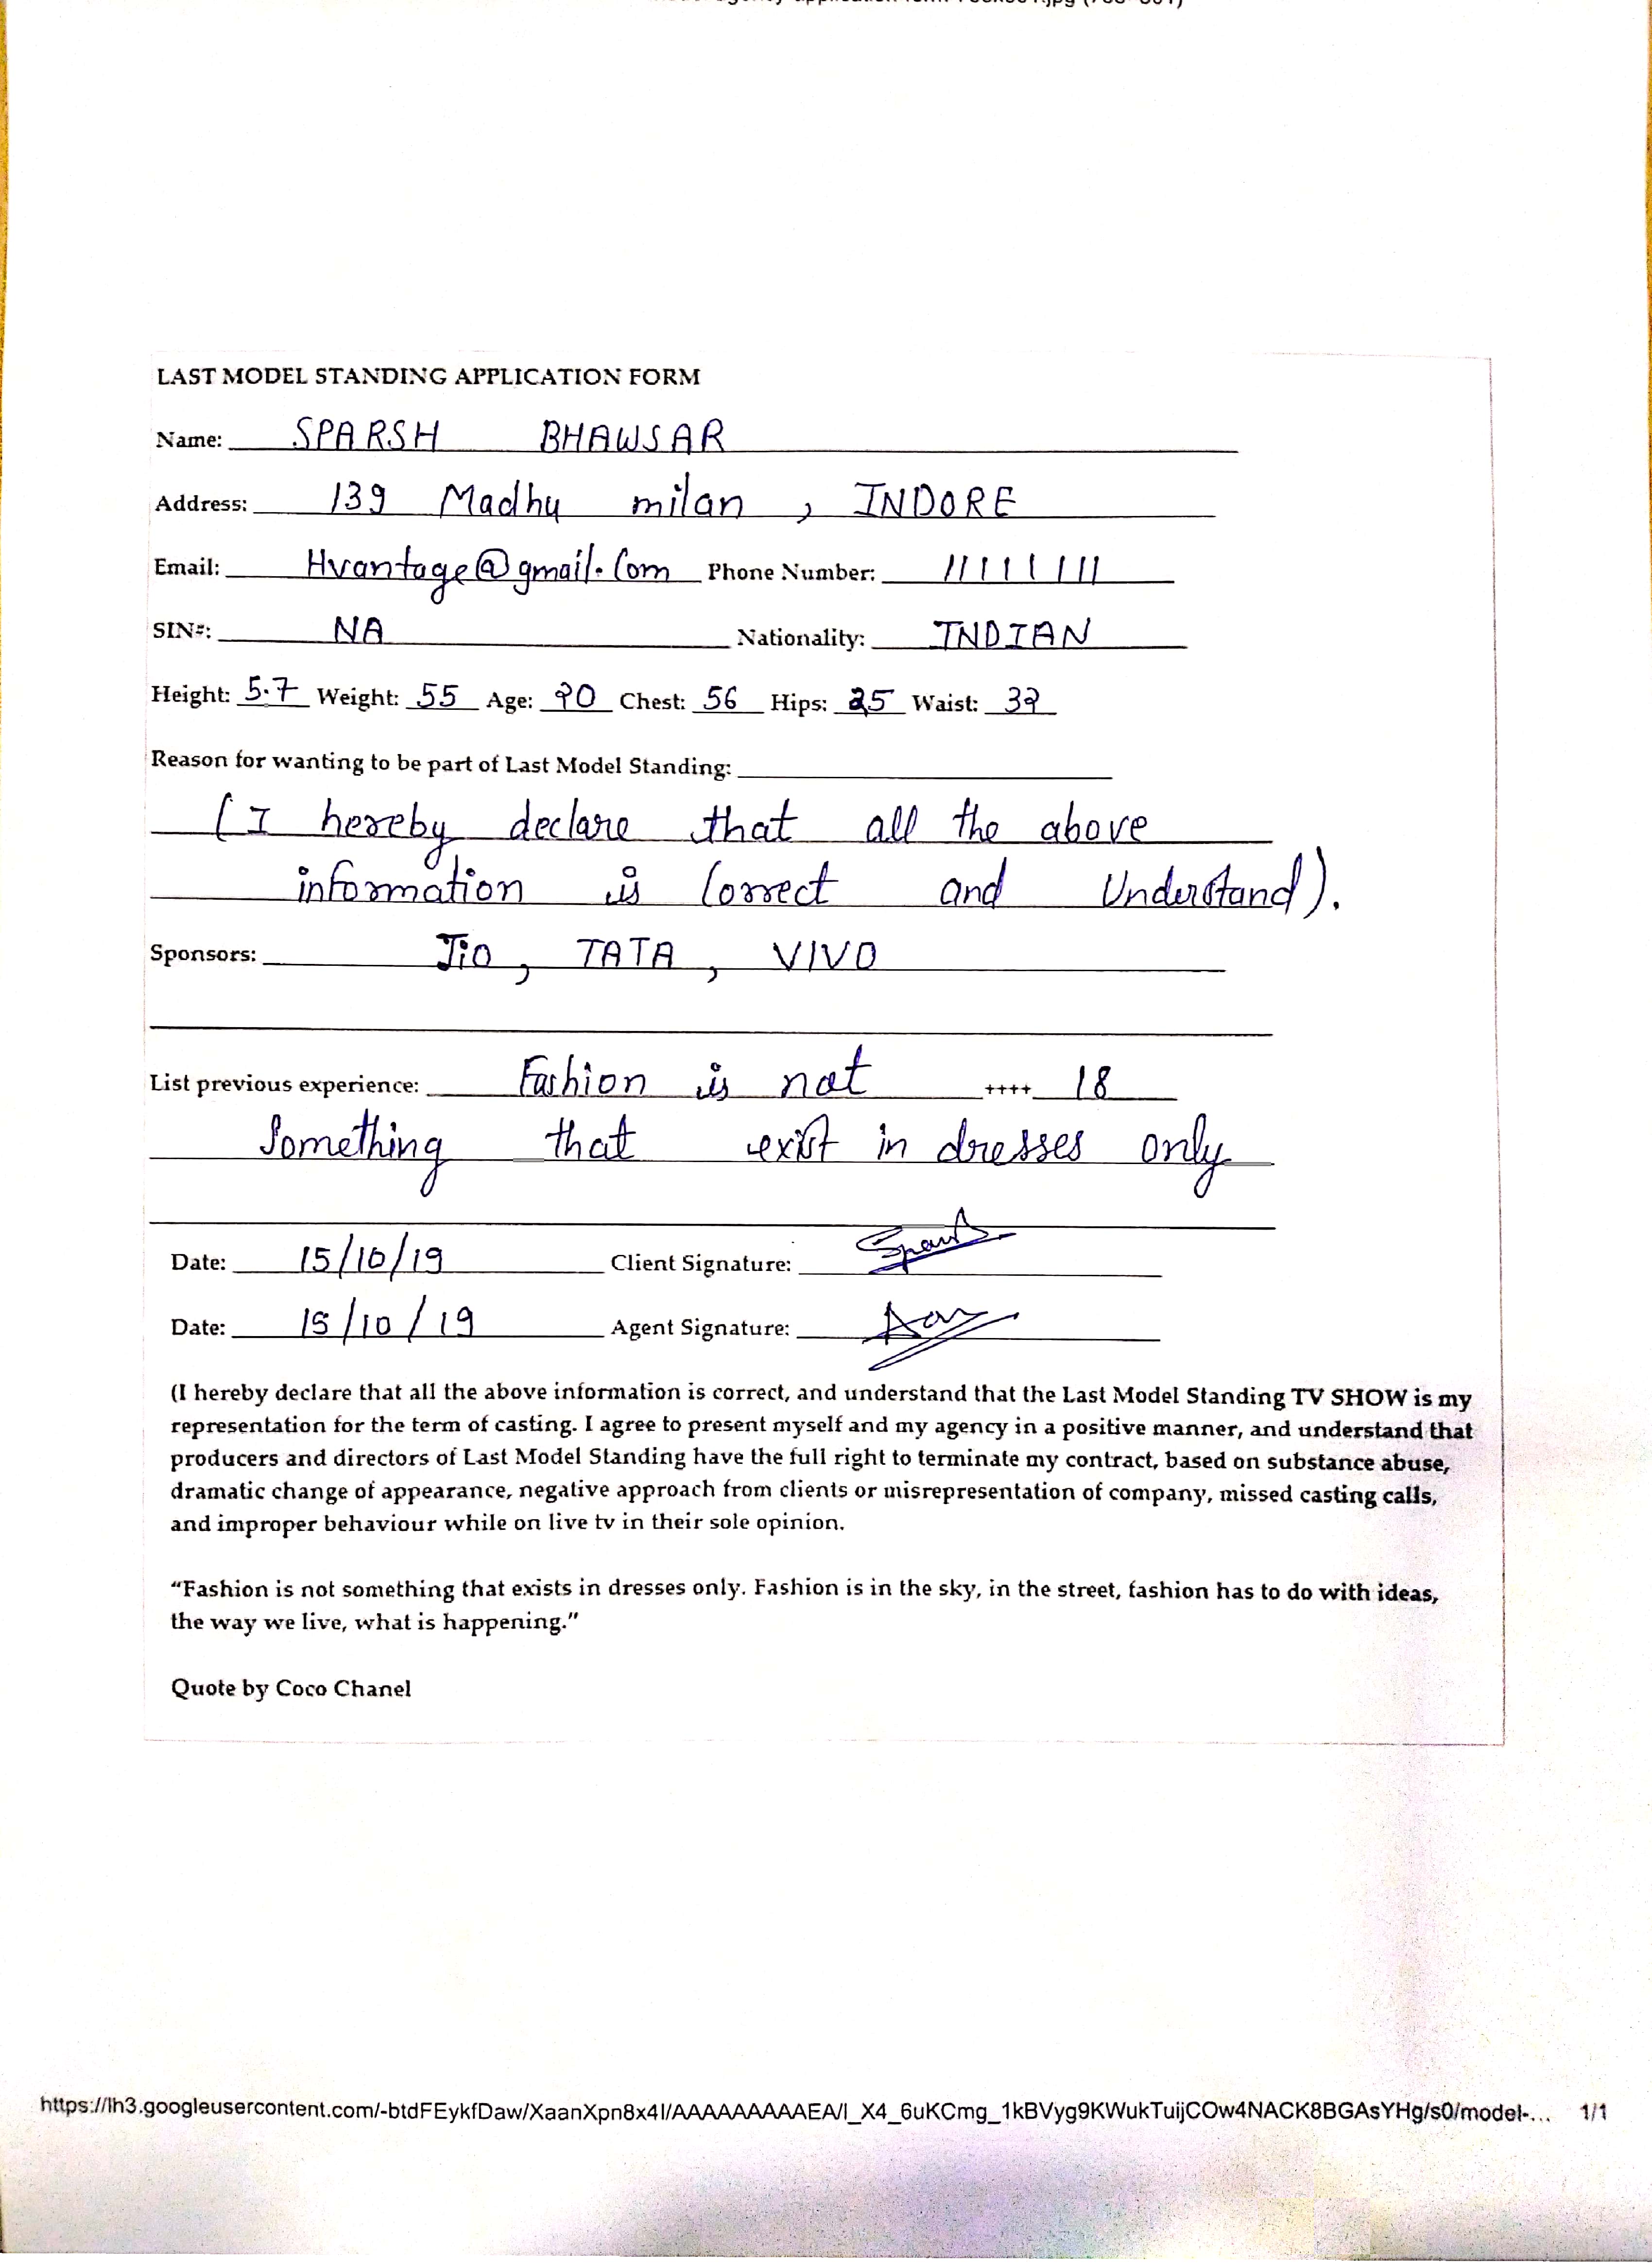 LAST MODEL STANDING APPLICATION FORM
Name: SPARSH BHAWSAR
Address: 139 Madhu milan , INDORE
Email: Hvantage@gmail.Com Phone Number: 111111111
SIN#: NA Nationality: INDIAN
Height: 5.7 Weight: 55 Age: 20 Chest: 56 Hips: 25 Waist: 32
Reason for wanting to be part of Last Model Standing:
(I hereby declare that all the above
information is Correct and Understand).
Sponsors: Jio, TATA, VIVO
List previous experience: Fashion is not ++++ 18
Something that exist in dresses only
Date: 15/10/19 Client Signature:
Date: 15/10/19 Agent Signature:
(I hereby declare that all the above information is correct, and understand that the Last Model Standing TV SHOW is my
representation for the term of casting. I agree to present myself and my agency in a positive manner, and understand that
producers and directors of Last Model Standing have the full right to terminate my contract, based on substance abuse,
dramatic change of appearance, negative approach from clients or misrepresentation of company, missed casting calls,
and improper behaviour while on live tv in their sole opinion.
“Fashion is not something that exists in dresses only. Fashion is in the sky, in the street, fashion has to do with ideas,
the way we live, what is happening.”
Quote by Coco Chanel
https://lh3.googleusercontent.com/-btdFEykfDaw/XaanXpn8x4I/AAAAAAAAAEA/I_X4_6uKCmg_1kBVyg9KWukTuijCOw4NACK8BGAsYHg/s0/model-... 1/1